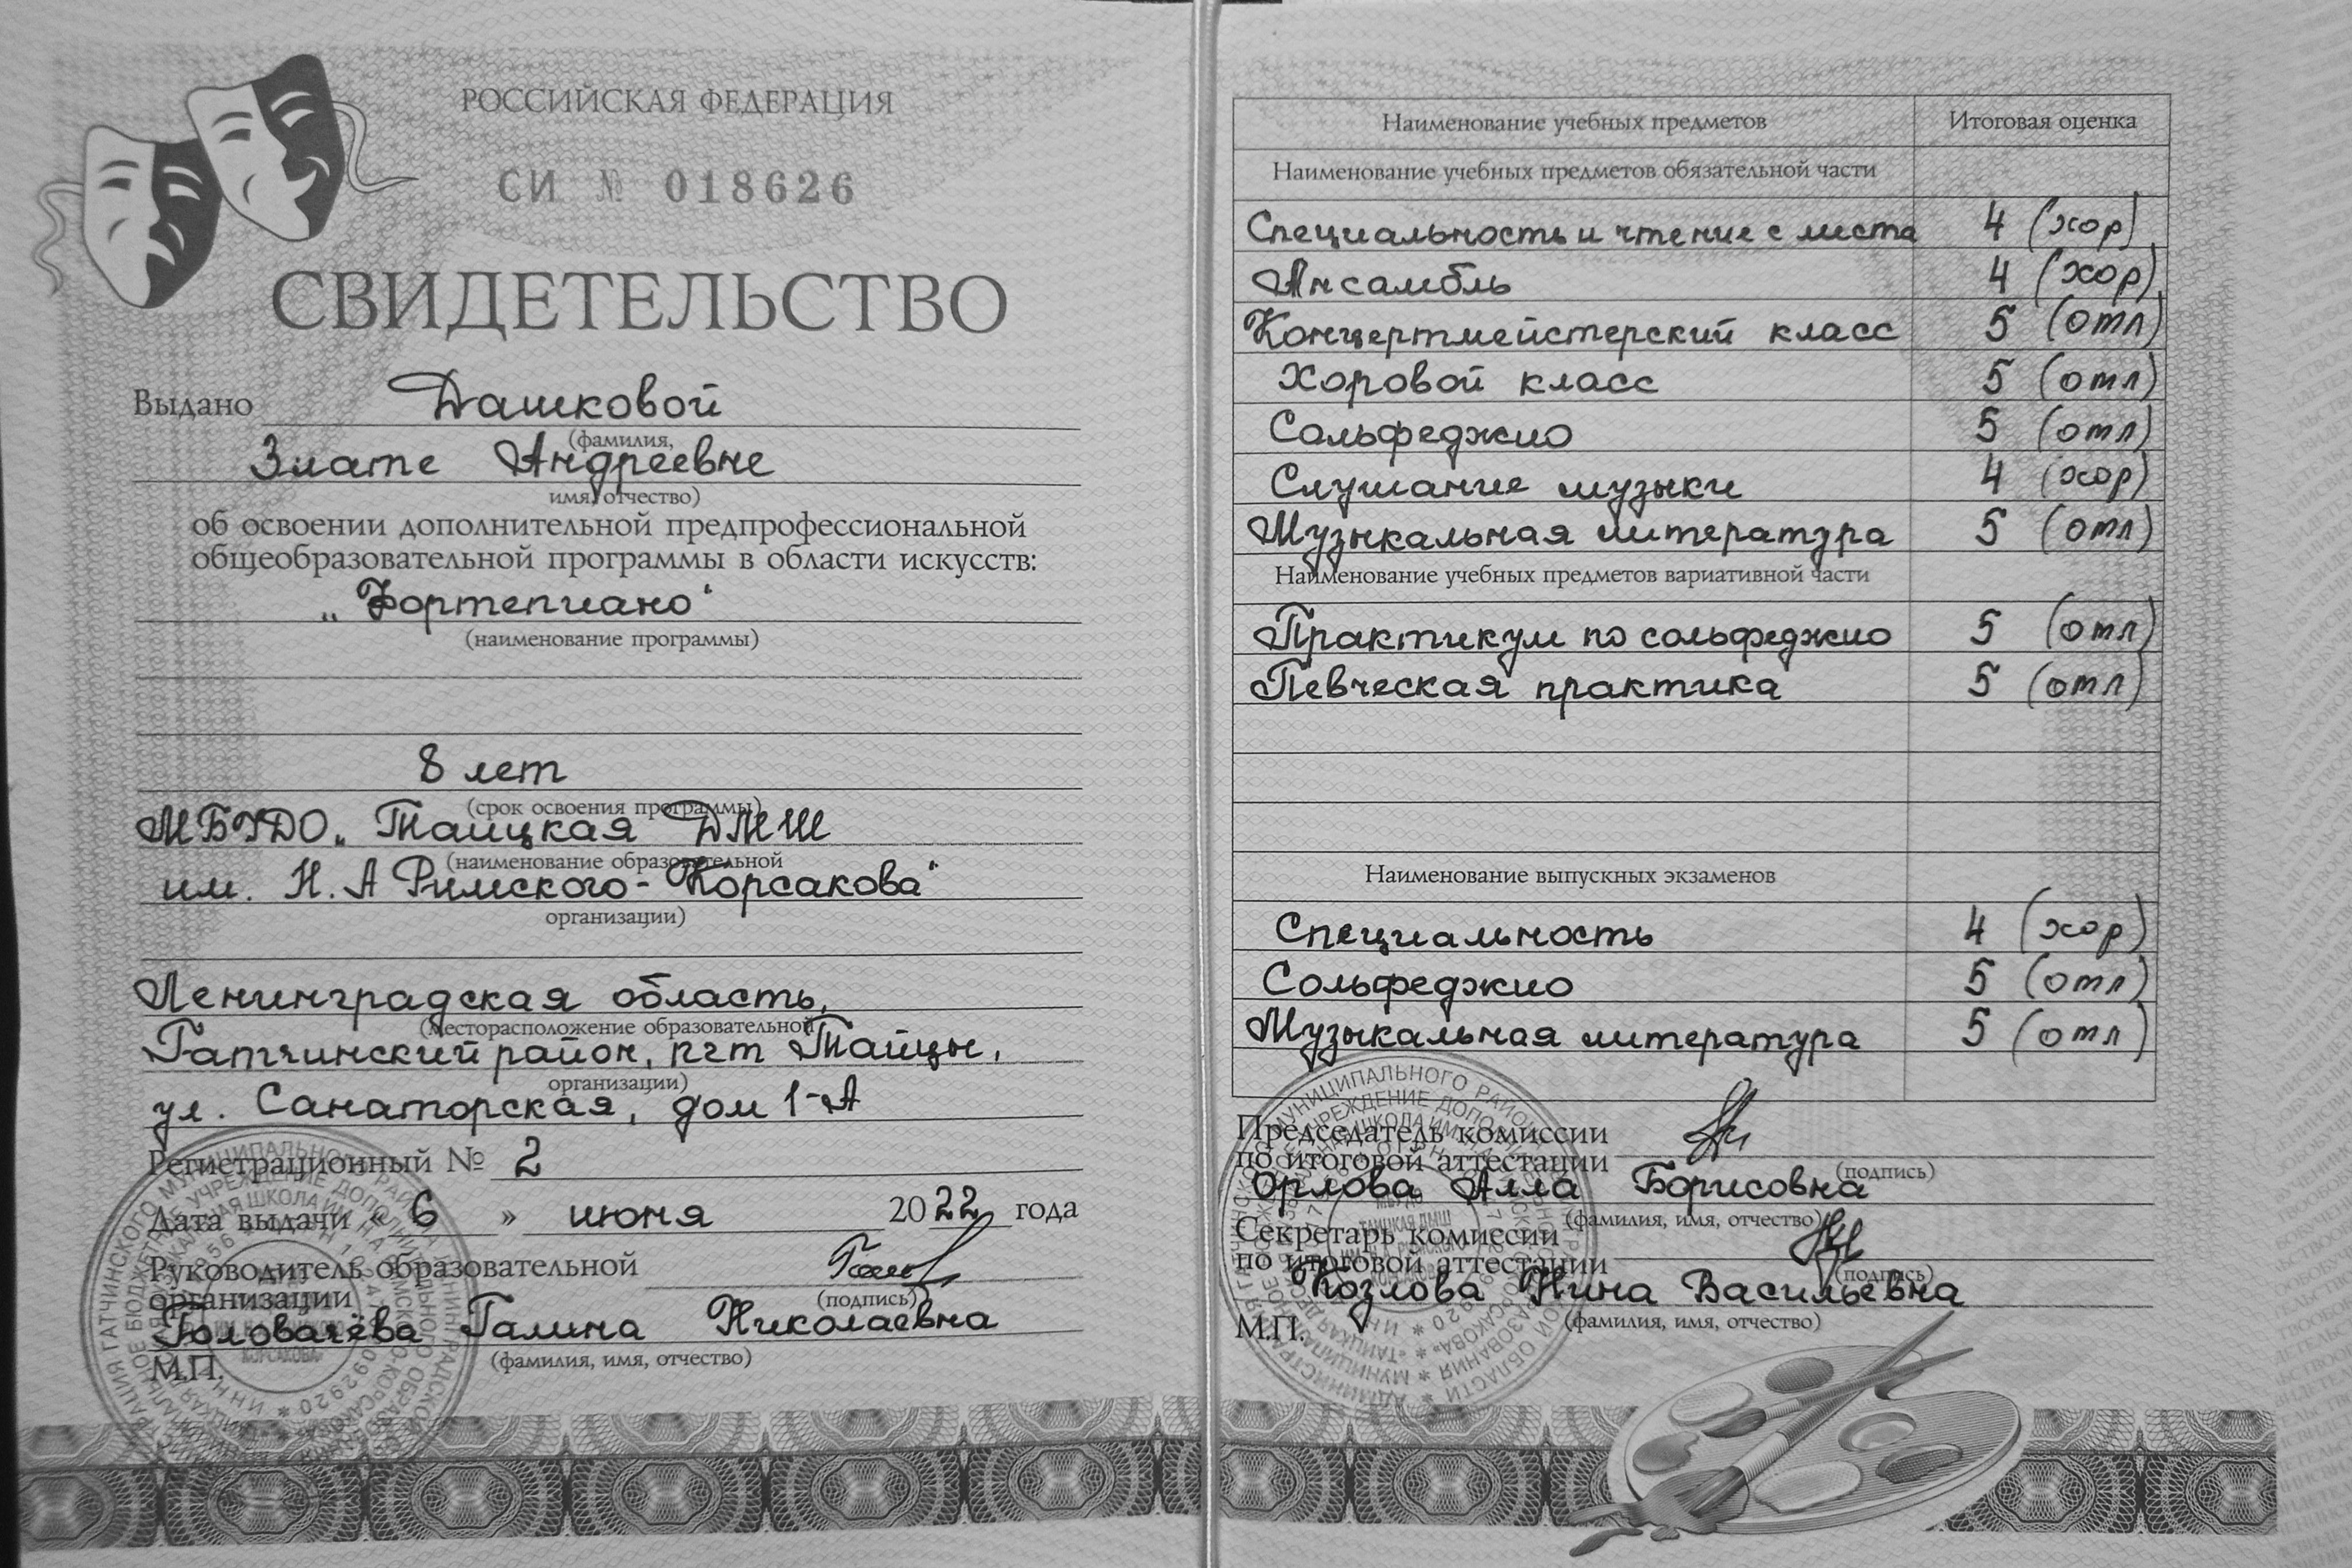 РОССИЙСКАЯ ФЕДЕРАЦИЯ
СИ № 018626
СВИДЕТЕЛЬСТВО
Выдано Дашковой
(фамилия,
Злате Андреевне
имя, отчество)
об освоении дополнительной предпрофессиональной
общеобразовательной программы в области искусств:
„Фортепиано“
(наименование программы)
8 лет
(срок освоения программы)
МБУДО „Таицкая ДМШ
(наименование образовательной
им. Н.А Римского-Корсакова“
организации)
Ленинградская область,
(месторасположение образовательной
Гатчинский район, пгт Тайцы,
организации)
ул. Санаторская, дом 1-А
Регистрационный № 2
Дата выдачи « 6 » июня 2022 года
Руководитель образовательной
организации
(подпись)
Головачёва Галина Николаевна
(фамилия, имя, отчество)
М.П.
Наименование учебных предметов Итоговая оценка
Наименование учебных предметов обязательной части
Специальность и чтение с листа 4 (хор)
Ансамбль 4 (хор)
Концертмейстерский класс 5 (отл)
Хоровой класс 5 (отл)
Сольфеджио 5 (отл)
Слушание музыки 4 (хор)
Музыкальная литература 5 (отл)
Наименование учебных предметов вариативной части
Практикум по сольфеджио 5 (отл)
Певческая практика 5 (отл)
Наименование выпускных экзаменов
Специальность 4 (хор)
Сольфеджио 5 (отл)
Музыкальная литература 5 (отл)
Председатель комиссии
по итоговой аттестации
(подпись)
Орлова Алла Борисовна
(фамилия, имя, отчество)
Секретарь комиссии
по итоговой аттестации
(подпись)
Козлова Нина Васильевна
(фамилия, имя, отчество)
М.П.